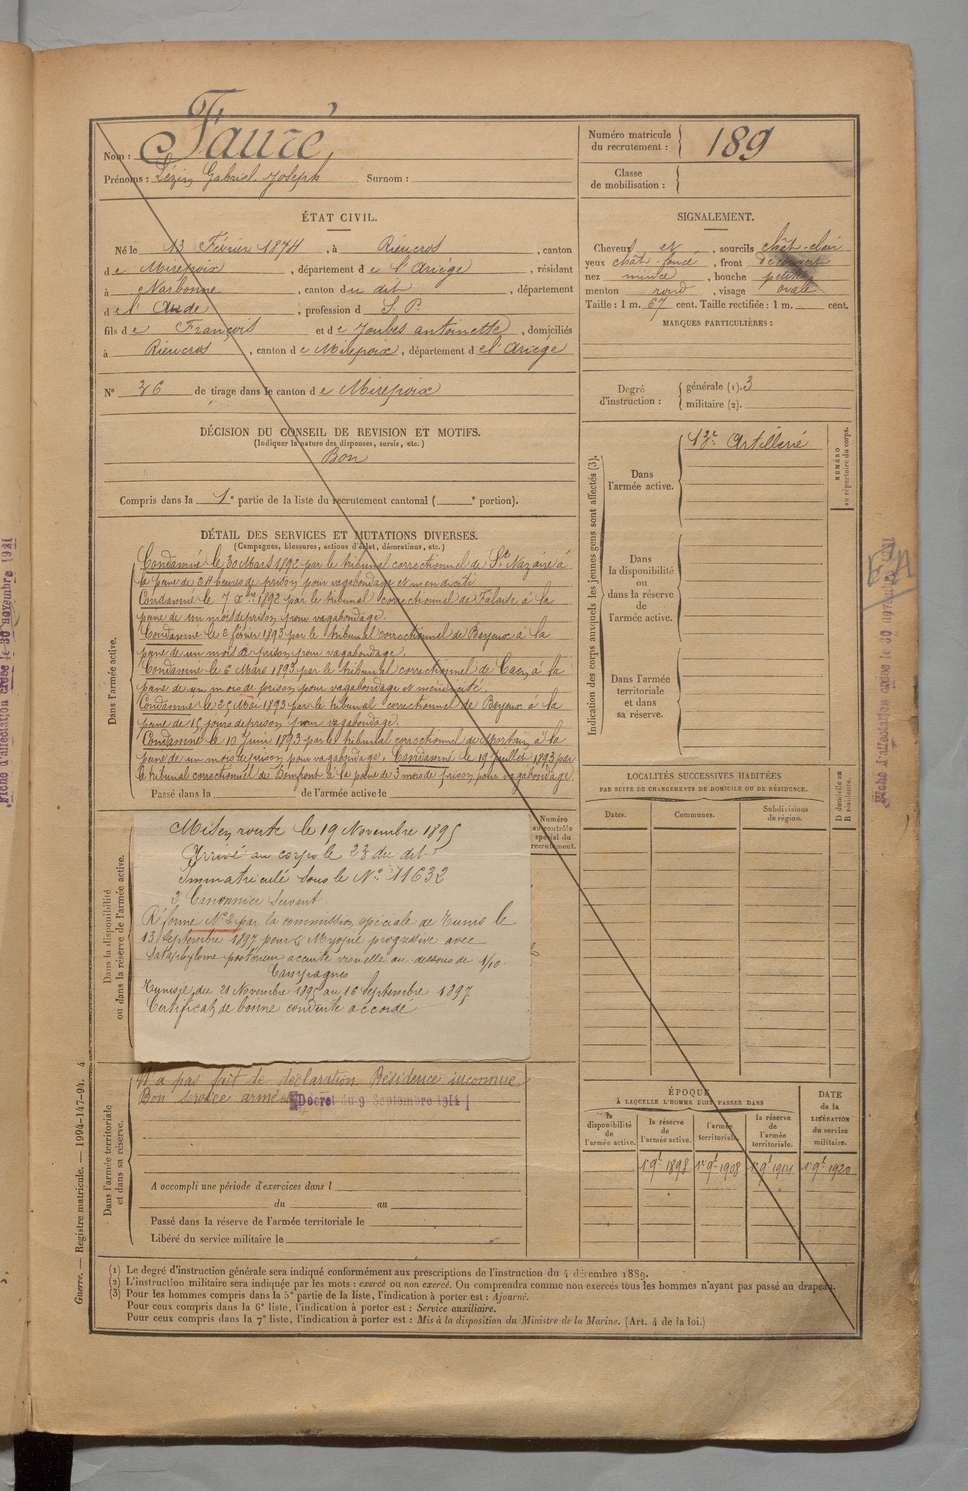 Fauré
Nom :
Prénoms : Lézin Gabriel Joseph Surnom :
Numéro matricule du recrutement : 189
Classe de mobilisation :
ÉTAT CIVIL.
Né le 13 Février 1874, à Rieucros, canton
de Mirepoix, département de l'Ariège, résidant
à Narbonne, canton du dit, département
de l'Aude, profession d S. P.
fils de François et de Joulès antoinette, domiciliés
à Rieucros, canton de Mirepoix, département de l'Ariège
N° 36 de tirage dans le canton de Mirepoix
SIGNALEMENT.
Cheveux et, sourcils chât-clair
yeux chât-foncé, front découvert
nez mince, bouche petite
menton rond, visage ovale
Taille : 1 m. 67 cent. Taille rectifiée : 1 m. cent.
MARQUES PARTICULIÈRES :
Degré d'instruction : générale (1). 3
militaire (2).
DÉCISION DU CONSEIL DE REVISION ET MOTIFS.
(Indiquer la nature des dispenses, sursis, etc.)
Bon
Compris dans la 1e partie de la liste du recrutement cantonal ( e portion).
DÉTAIL DES SERVICES ET MUTATIONS DIVERSES.
(Campagnes, blessures, actions d'éclat, décorations, etc.)
Dans l'armée active.
Condamné le 30 Mars 1892 par le tribunal correctionnel de St Nazaire à
la peine de 24 heures de prison pour vagabondage et mendicité.
Condamné le 7 1892 par le tribunal correctionnel de Falaise à la
peine de un mois de prison pour vagabondage.
Condamné le 2 février 1893 par le tribunal correctionnel de à la
peine de un mois de prison pour vagabondage.
Condamné le 6 Mars 1893 par le tribunal correctionnel de Caen à la
peine de un mois de prison pour vagabondage et mendicité.
Condamné le 25 Mai 1893 par le tribunal correctionnel de à la
peine de 15 jours de prison pour vagabondage.
Condamné le 10 Juin 1893 par le tribunal correctionnel de Mortain à la
peine de un mois de prison pour vagabondage. Condamné le 19 Juillet 1893 par
le tribunal correctionnel de Domfront à la peine de 3 mois de prison pour vagabondage
Passé dans la de l'armée active le
Numéro au contrôle spécial du recrutement.
Dans la disponibilité ou dans la réserve de l'armée active.
Mis en route le 19 Novembre 1895
Arrivé au corps le 23 du dit
Immatriculé sous le N° 11632
2e Canonnier Servant
Réformé N° 2 par la commission spéciale de Tunis le
13 Septembre 1897 pour Myopie progressive avec
Staphylome postérieur acuité visuelle au dessous de 1/10.
Campagnes
Tunisie, du 21 Novembre 1895 au 16 Septembre 1897
Certificat de bonne conduite accordé
Dans l'armée territoriale et dans sa réserve.
N'a pas fait de déclaration Résidence inconnue.
Bon service armé Décret du 9 Septembre 1914
A accompli une période d'exercices dans l
du au
Passé dans la réserve de l'armée territoriale le
Libéré du service militaire le
Indication des corps auxquels les jeunes gens sont affectés (3).
NUMÉRO au répertoire du corps.
Dans l'armée active. 13e Artillerie
Dans la disponibilité ou dans la réserve de l'armée active.
Dans l'armée territoriale et dans sa réserve.
LOCALITÉS SUCCESSIVES HABITÉES
PAR SUITE DE CHANGEMENTS DE DOMICILE OU DE RÉSIDENCE.
Dates. Communes. Subdivisions de région. D domicile ou R résidence.
ÉPOQUE
À LAQUELLE L'HOMME DOIT PASSER DANS
la disponibilité de l'armée active. la réserve de l'armée active. l'armée territoriale. la réserve de l'armée territoriale.
DATE de la LIBÉRATION du service militaire.
1er 9bre 1898 1er 9bre 1908 1er 9bre 1914 1er 9bre 1920
(1) Le degré d'instruction générale sera indiqué conformément aux prescriptions de l'instruction du 4 décembre 1889.
(2) L'instruction militaire sera indiquée par les mots : exercé ou non exercé. On comprendra comme non exercés tous les hommes n'ayant pas passé au drapeau.
(3) Pour les hommes compris dans la 5e partie de la liste, l'indication à porter est : Ajourné.
Pour ceux compris dans la 6e liste, l'indication à porter est : Service auxiliaire.
Pour ceux compris dans la 7e liste, l'indication à porter est : Mis à la disposition du Ministre de la Marine. (Art. 4 de la loi.)
Guerre. — Registre matricule. — 1994-147-94. 4
Fiche d'affectation créée le 30 novembre 1931